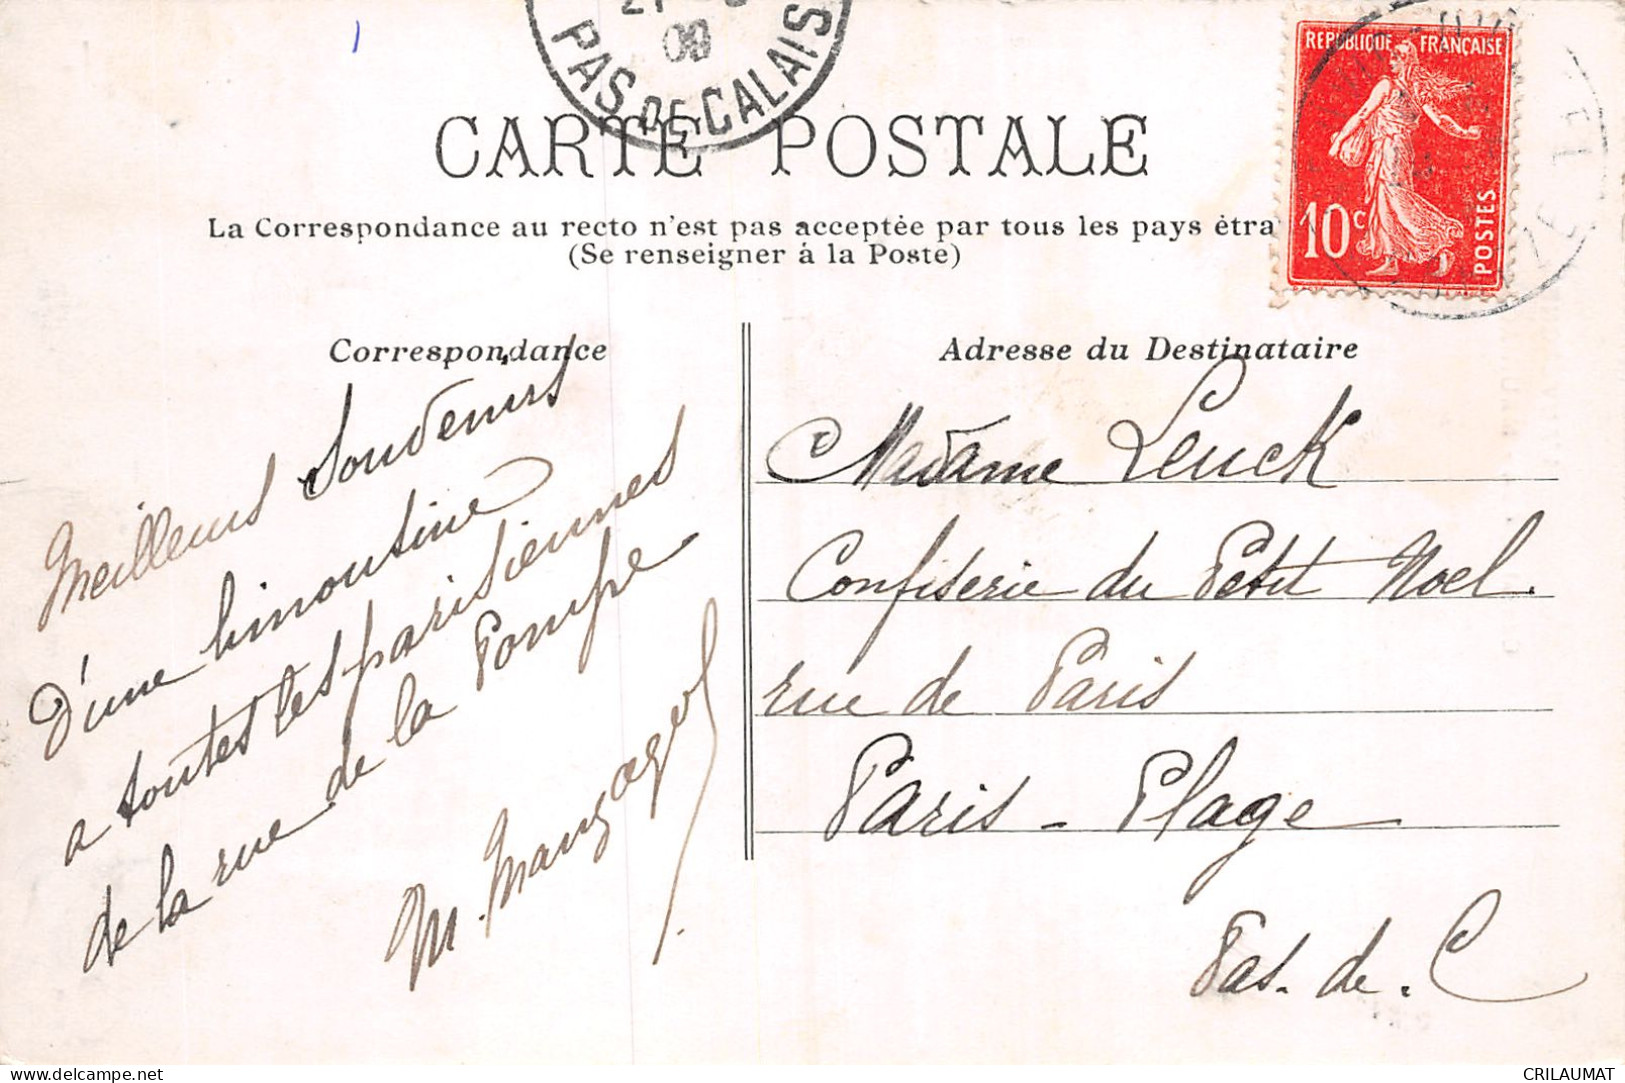 1
21
09
PAS-DE-CALAIS
REPUBLIQUE FRANÇAISE
10c
POSTES
CARTE POSTALE
La Correspondance au recto n'est pas acceptée par tous les pays étra
(Se renseigner à la Poste)
Correspondance
Meilleurs Souvenirs
d'une limousine
a toutes les parisiennes
de la rue de la Pompe
M.
Adresse du Destinataire
Madame Leuck
Confiserie du Petit Noel.
rue de Paris
Paris - Plage
Pas. de. C
delcampe.net
CRILAUMAT